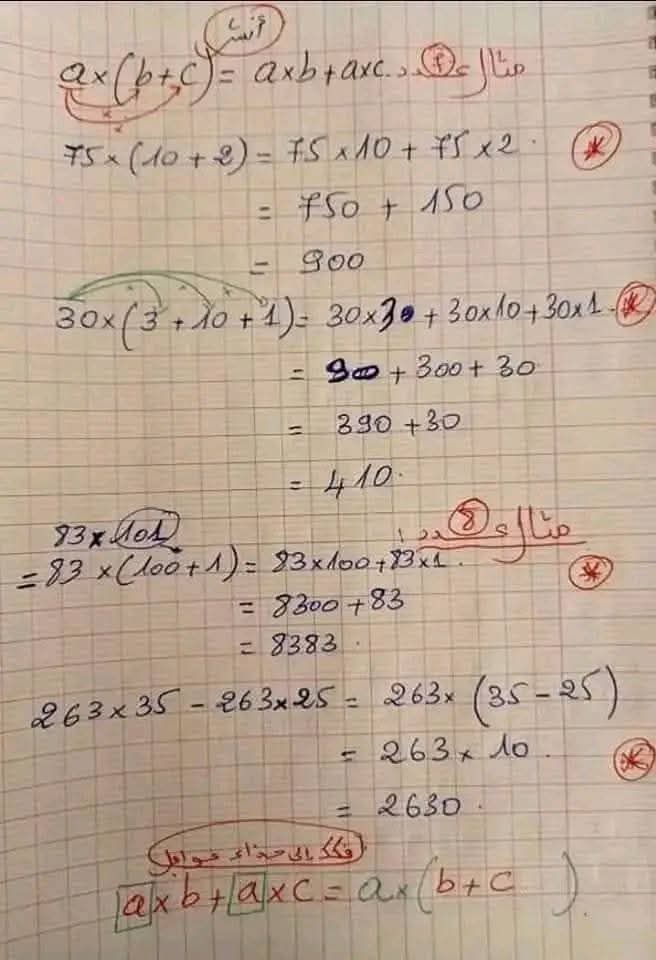 أنشر
a×(b+c) = a×b+a×c. مثال عدد 7
75×(10+2) = 75×10 + 75×2.
= 750 + 150
= 900
30×(3+10+1) = 30×30 + 30×10 + 30×1.
= 900 + 300 + 30
= 390 + 30
= 410.
مثال عدد 8:
83×101
= 83×(100+1) = 83×100+83×1.
= 8300+83
= 8383.
263×35 - 263×25 = 263×(35-25)
= 263×10.
= 2630.
فكك إلى جذاء عوامل
a×b+a×c = a×(b+c).